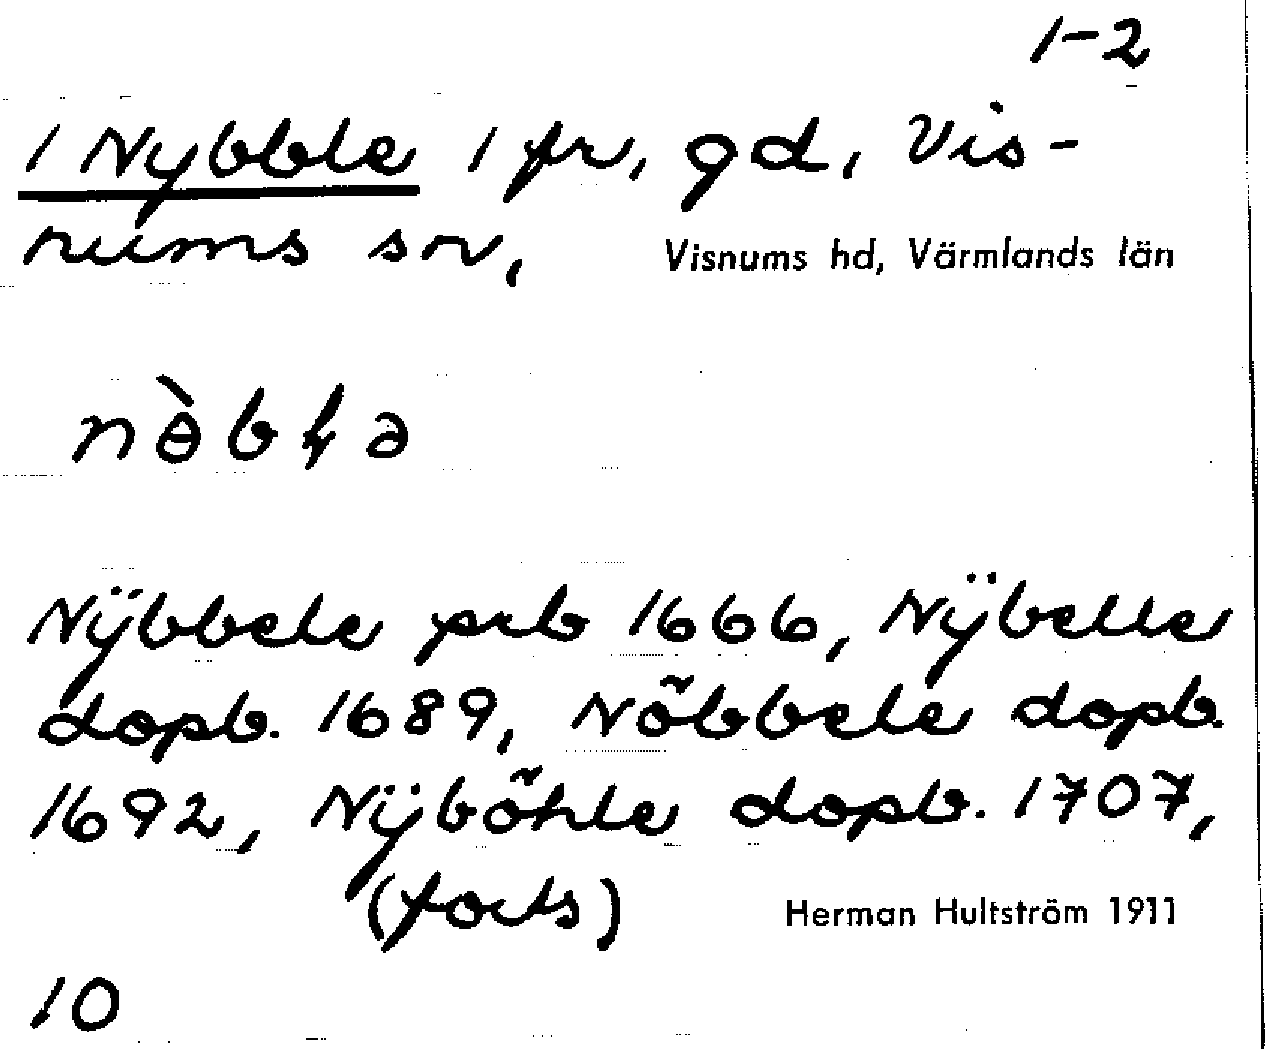 1-2
1 Nybble 1 fr, gd, Vis-
nums sn, Visnums hd, Värmlands län
nɵ̀bła
Nÿbbele prb 1666, Nÿbelle
dopb. 1689, Nõbbele dopb.
1692, Nÿbõhle dopb. 1707,
(forts) Herman Hultström 1911
10